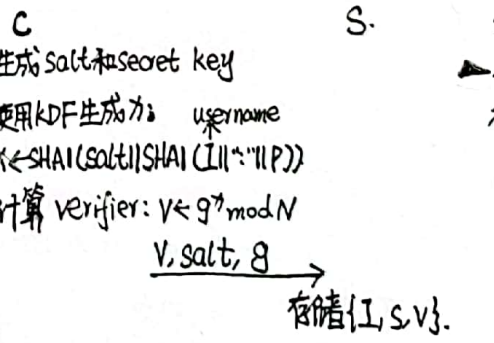 C S.
生成salt和secret key
使用KDF生成x: username
x←SHA1(salt||SHA1(I||":"||P))
计算 verifier: V←g^x mod N
V, salt, g
存储{I, S, V}.